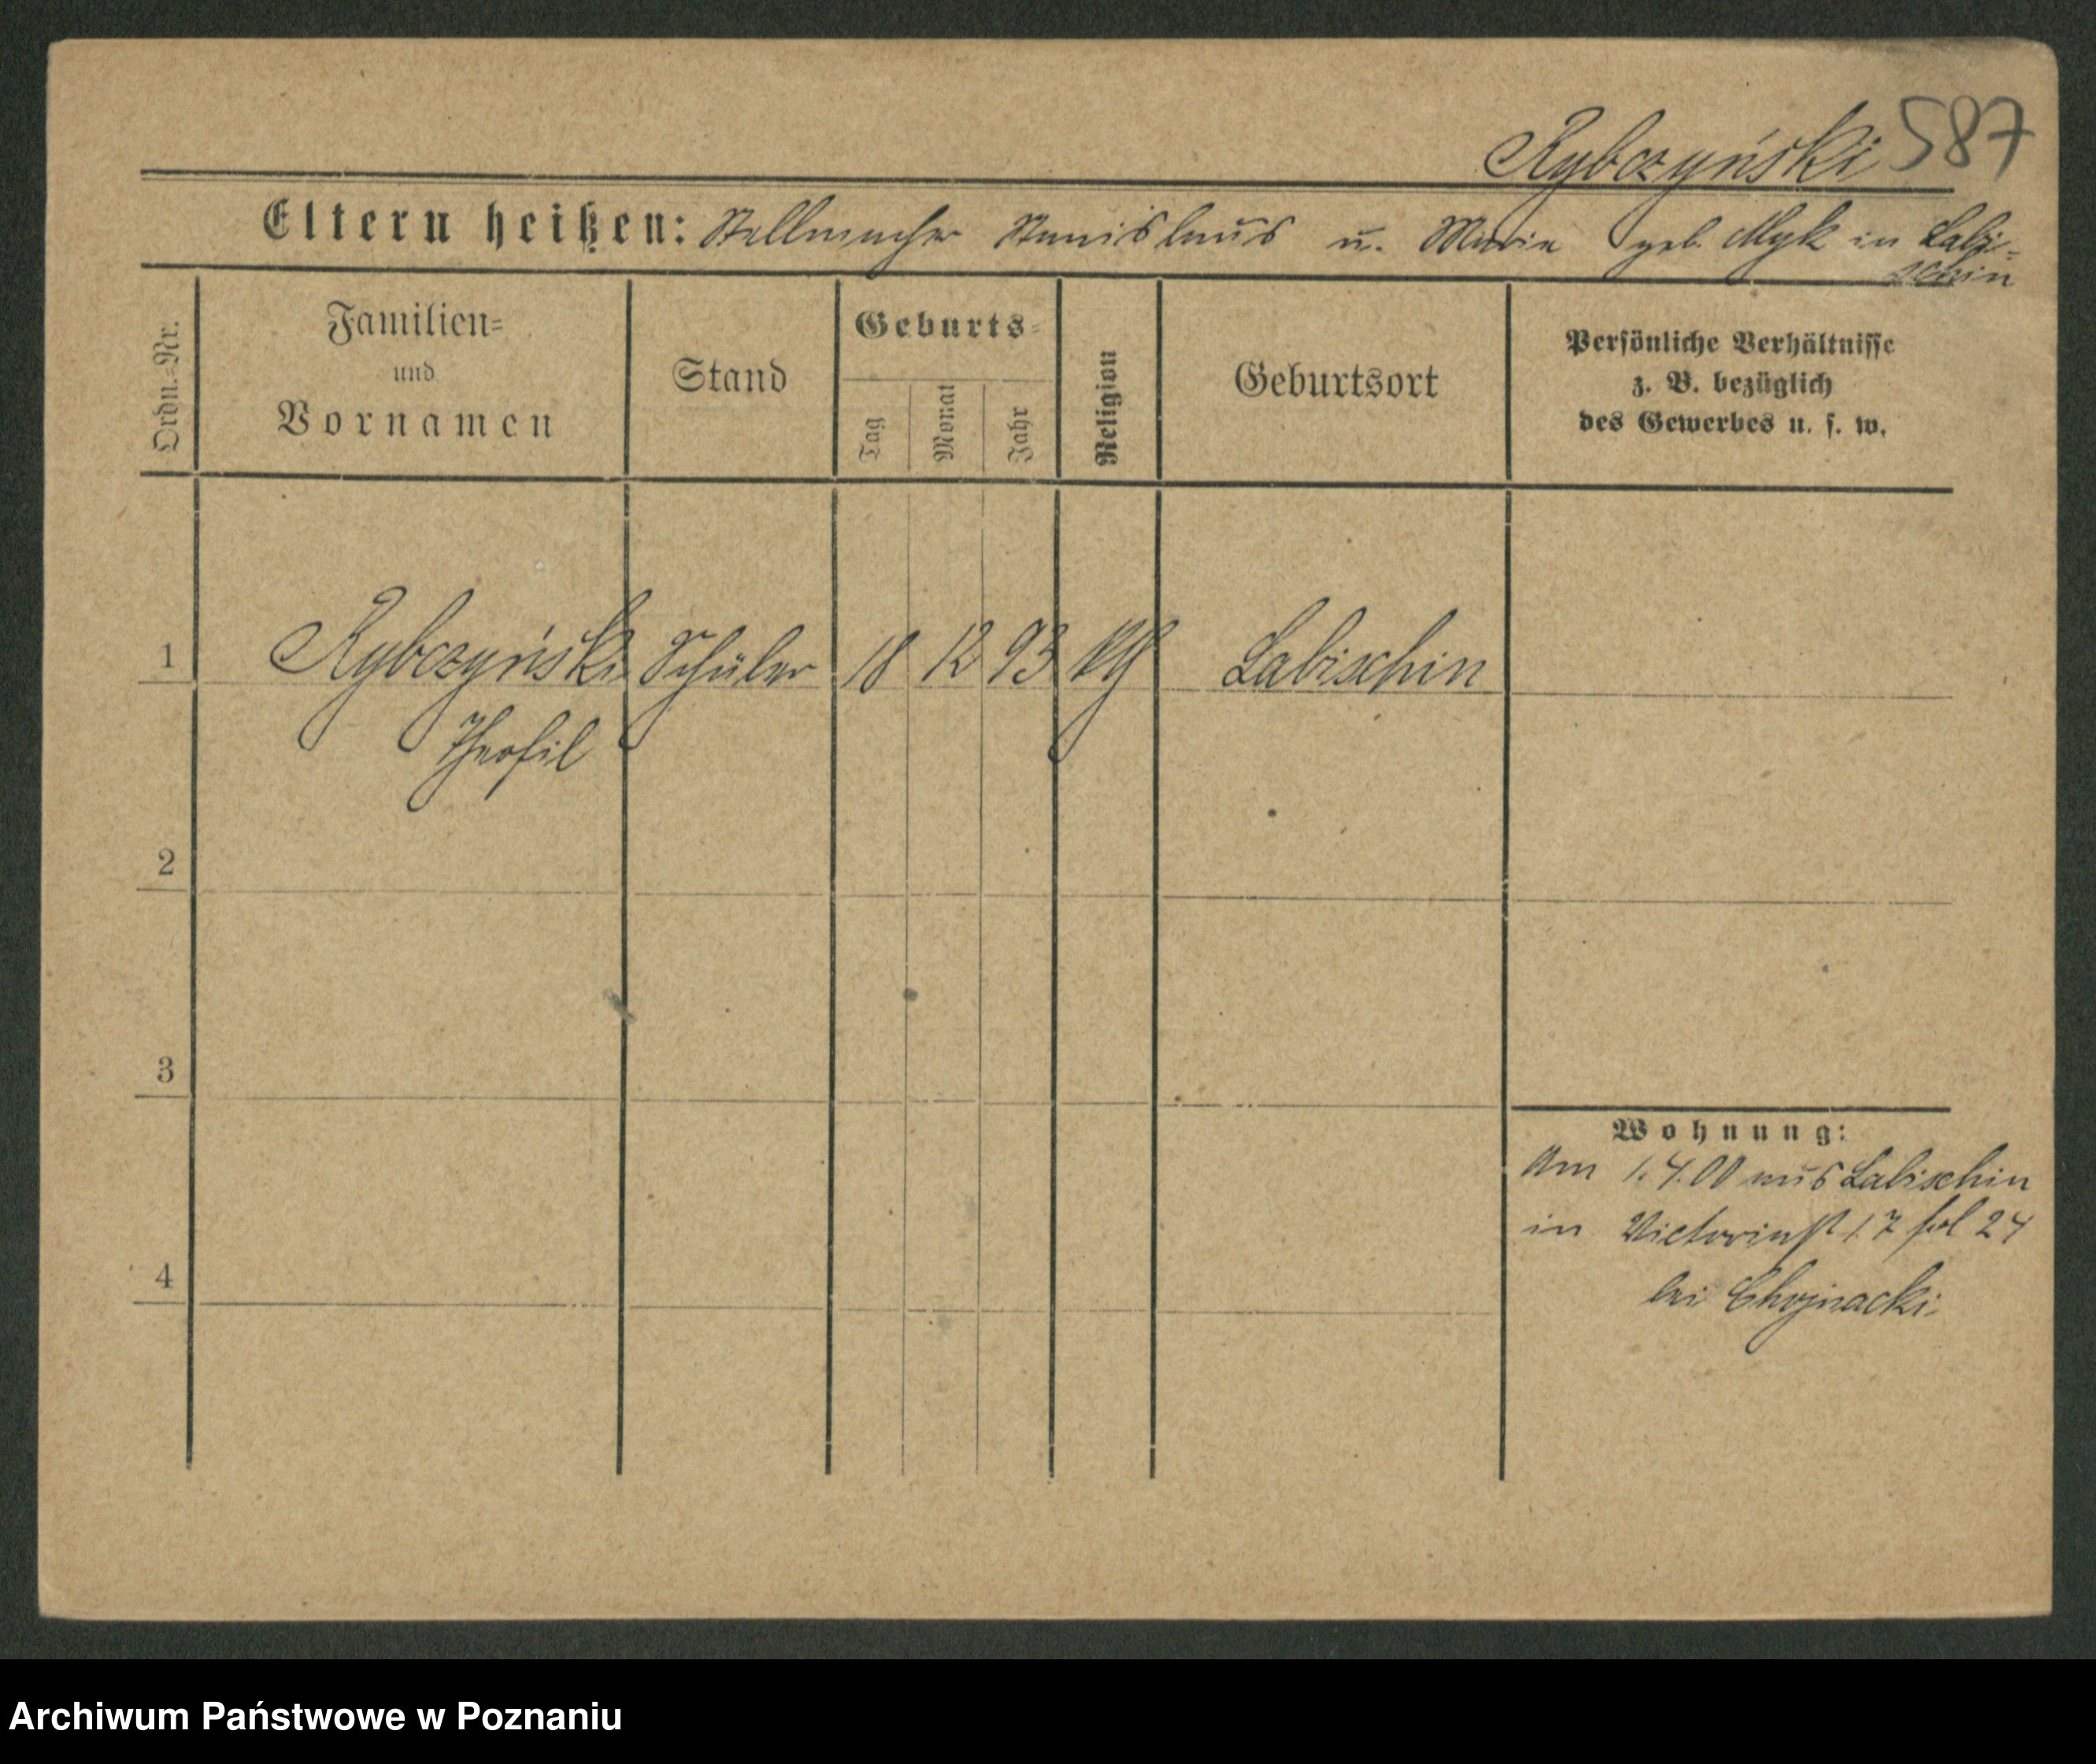 Rybczyński 587
Eltern heißen: Stellmacher Stanislaus u. Maria geb. Myk in Labi-
schin
Ordn.-Nr.
Familien-
und
Vornamen
Stand
Geburts-
Tag
Monat
Jahr
Religion
Geburtsort
Persönliche Verhältnisse
z. B. bezüglich
des Gewerbes u. s. w.
1 Rybczyński Schüler 18 12 93 Labischin
Theofil
2
3
4
Wohnung:
Am 1.4.00 aus Labischin
in Victoriast 17 fol 24
bei Chojnacki.
Archiwum Państwowe w Poznaniu